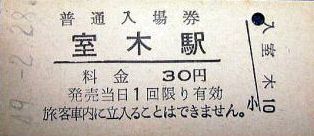 普通入場券
室木駅
料金 30円
発売当日1回限り有効
旅客車内に立入ることはできません。
49.-2.28
入室木10
小